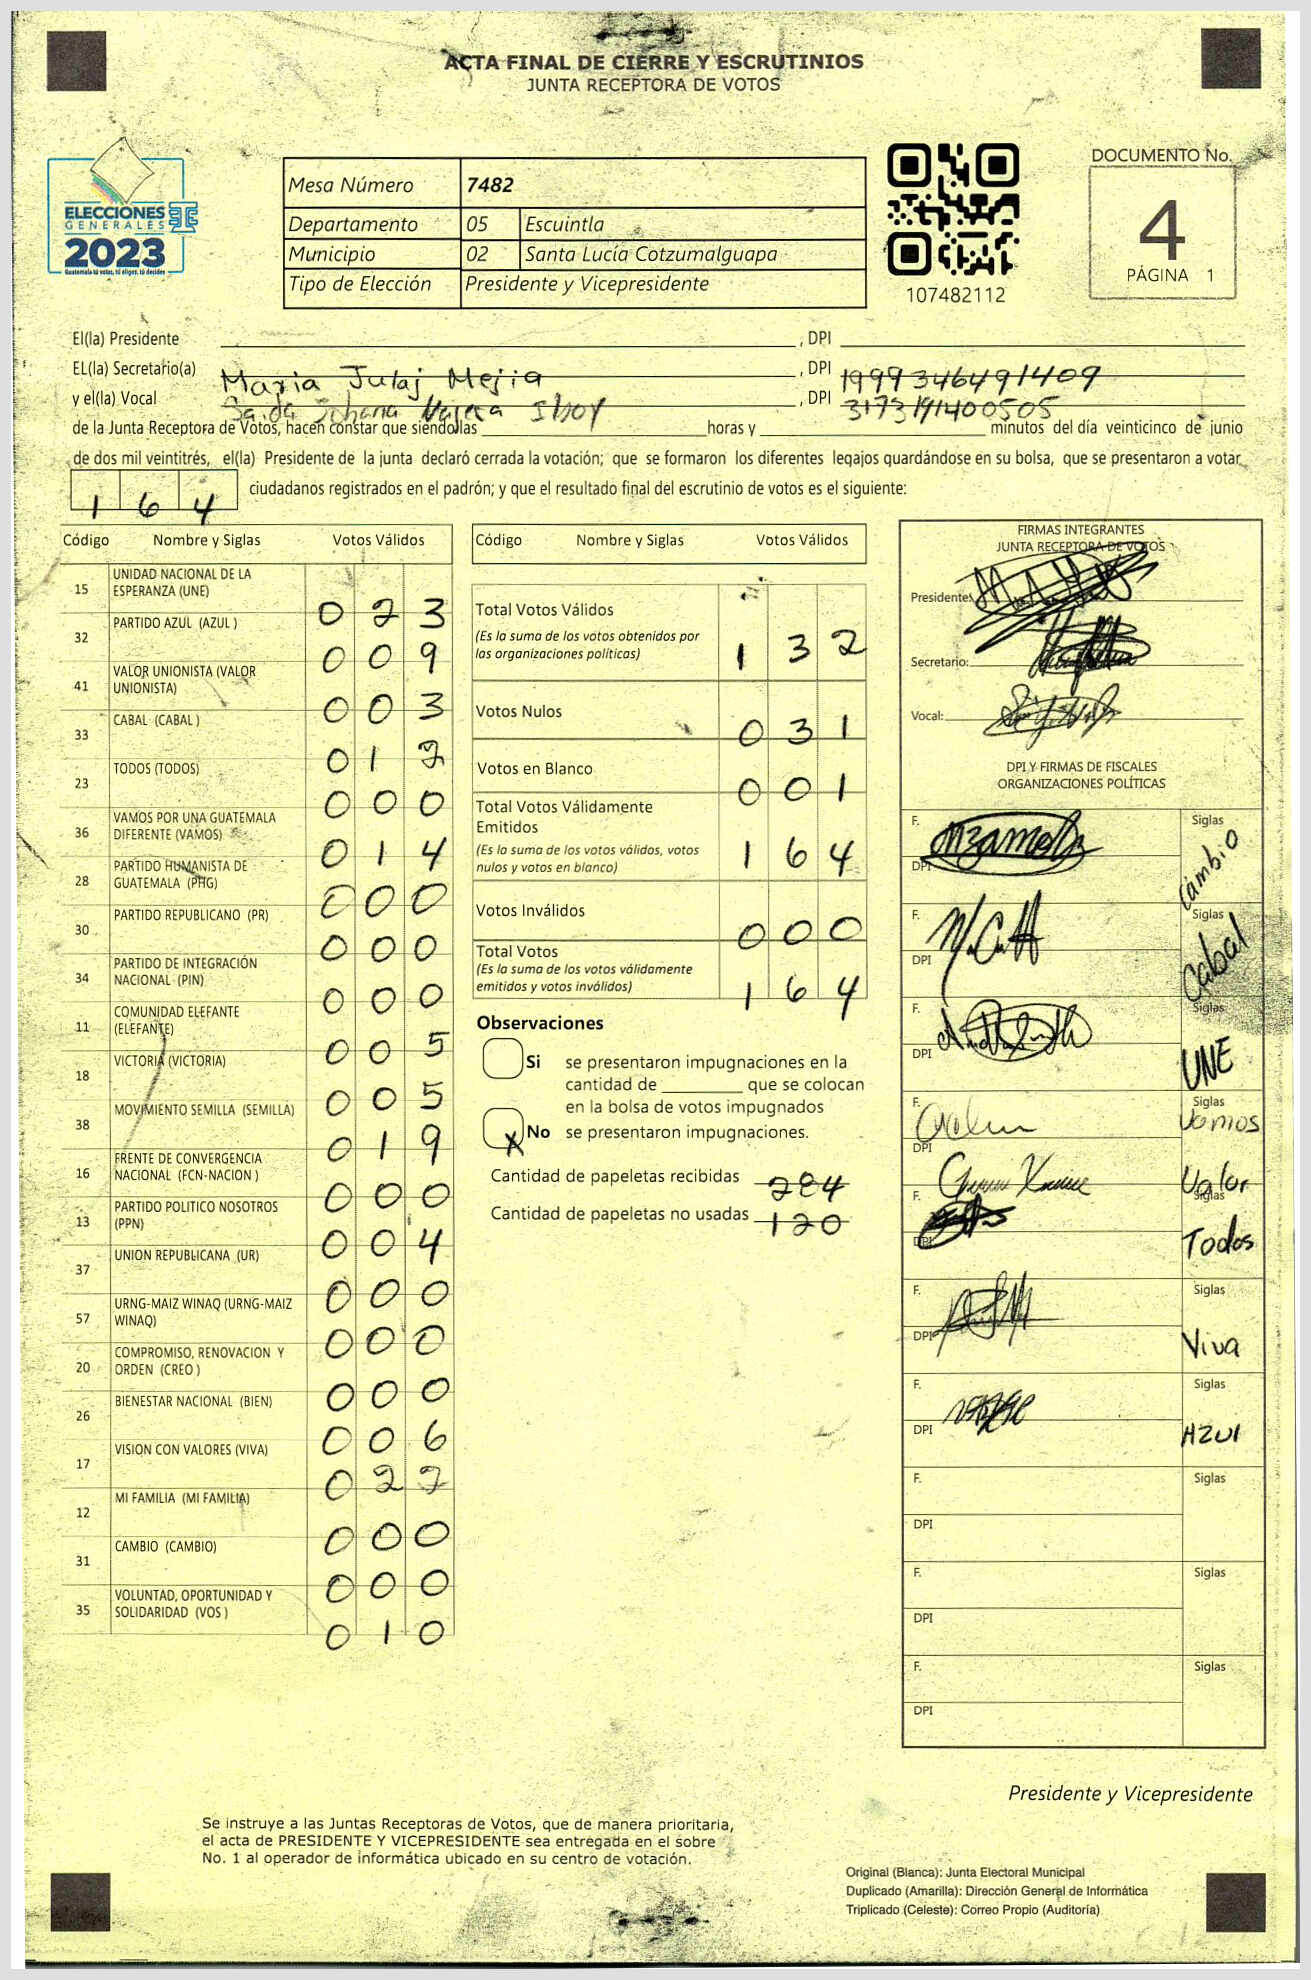 ACTA FINAL DE CIERRE Y ESCRUTINIOS
JUNTA RECEPTORA DE VOTOS
ELECCIONES
GENERALES
2023
Guatemala tú votas, tú eliges, tú decides
Mesa Número 7482
Departamento 05 Escuintla
Municipio 02 Santa Lucía Cotzumalguapa
Tipo de Elección Presidente y Vicepresidente
107482112
DOCUMENTO No.
4
PÁGINA 1
El(la) Presidente , DPI
EL(la) Secretario(a) Maria Julaj Mejia , DPI 1999346491409
y el(la) Vocal , DPI 3173191400505
de la Junta Receptora de Votos, hacen constar que siendo las horas y minutos del día veinticinco de junio
de dos mil veintitrés, el(la) Presidente de la junta declaró cerrada la votación; que se formaron los diferentes legajos guardándose en su bolsa, que se presentaron a votar
164 ciudadanos registrados en el padrón; y que el resultado final del escrutinio de votos es el siguiente:
Código Nombre y Siglas Votos Válidos
15 UNIDAD NACIONAL DE LA ESPERANZA (UNE) 023
32 PARTIDO AZUL (AZUL ) 009
41 VALOR UNIONISTA (VALOR UNIONISTA) 003
33 CABAL (CABAL ) 012
23 TODOS (TODOS) 000
36 VAMOS POR UNA GUATEMALA DIFERENTE (VAMOS) 014
28 PARTIDO HUMANISTA DE GUATEMALA (PHG) 000
30 PARTIDO REPUBLICANO (PR) 000
34 PARTIDO DE INTEGRACIÓN NACIONAL (PIN) 000
11 COMUNIDAD ELEFANTE (ELEFANTE) 005
18 VICTORIA (VICTORIA) 005
38 MOVIMIENTO SEMILLA (SEMILLA) 019
16 FRENTE DE CONVERGENCIA NACIONAL (FCN-NACION ) 000
13 PARTIDO POLITICO NOSOTROS (PPN) 004
37 UNION REPUBLICANA (UR) 000
57 URNG-MAIZ WINAQ (URNG-MAIZ WINAQ) 000
20 COMPROMISO, RENOVACION Y ORDEN (CREO ) 000
26 BIENESTAR NACIONAL (BIEN) 006
17 VISION CON VALORES (VIVA) 022
12 MI FAMILIA (MI FAMILIA) 000
31 CAMBIO (CAMBIO) 000
35 VOLUNTAD, OPORTUNIDAD Y SOLIDARIDAD (VOS ) 010
Código Nombre y Siglas Votos Válidos
Total Votos Válidos
(Es la suma de los votos obtenidos por
las organizaciones políticas) 132
Votos Nulos 031
Votos en Blanco 001
Total Votos Válidamente
Emitidos
(Es la suma de los votos válidos, votos
nulos y votos en blanco) 164
Votos Inválidos 000
Total Votos
(Es la suma de los votos válidamente
emitidos y votos inválidos) 164
Observaciones
Si se presentaron impugnaciones en la
cantidad de que se colocan
en la bolsa de votos impugnados
X No se presentaron impugnaciones.
Cantidad de papeletas recibidas 284
Cantidad de papeletas no usadas 120
FIRMAS INTEGRANTES
JUNTA RECEPTORA DE VOTOS
Presidente:
Secretario:
Vocal:
DPI Y FIRMAS DE FISCALES
ORGANIZACIONES POLÍTICAS
F. Siglas
DPI Cambio
F. Siglas
DPI Cabal
F. Siglas
DPI UNE
F. Siglas
Vamos
DPI
Valor
F. Siglas
DPI Todos
F. Siglas
DPI Viva
F. Siglas
DPI AZUl
F. Siglas
DPI
F. Siglas
DPI
F. Siglas
DPI
Presidente y Vicepresidente
Se instruye a las Juntas Receptoras de Votos, que de manera prioritaria,
el acta de PRESIDENTE Y VICEPRESIDENTE sea entregada en el sobre
No. 1 al operador de informática ubicado en su centro de votación.
Original (Blanca): Junta Electoral Municipal
Duplicado (Amarilla): Dirección General de Informática
Triplicado (Celeste): Correo Propio (Auditoría)